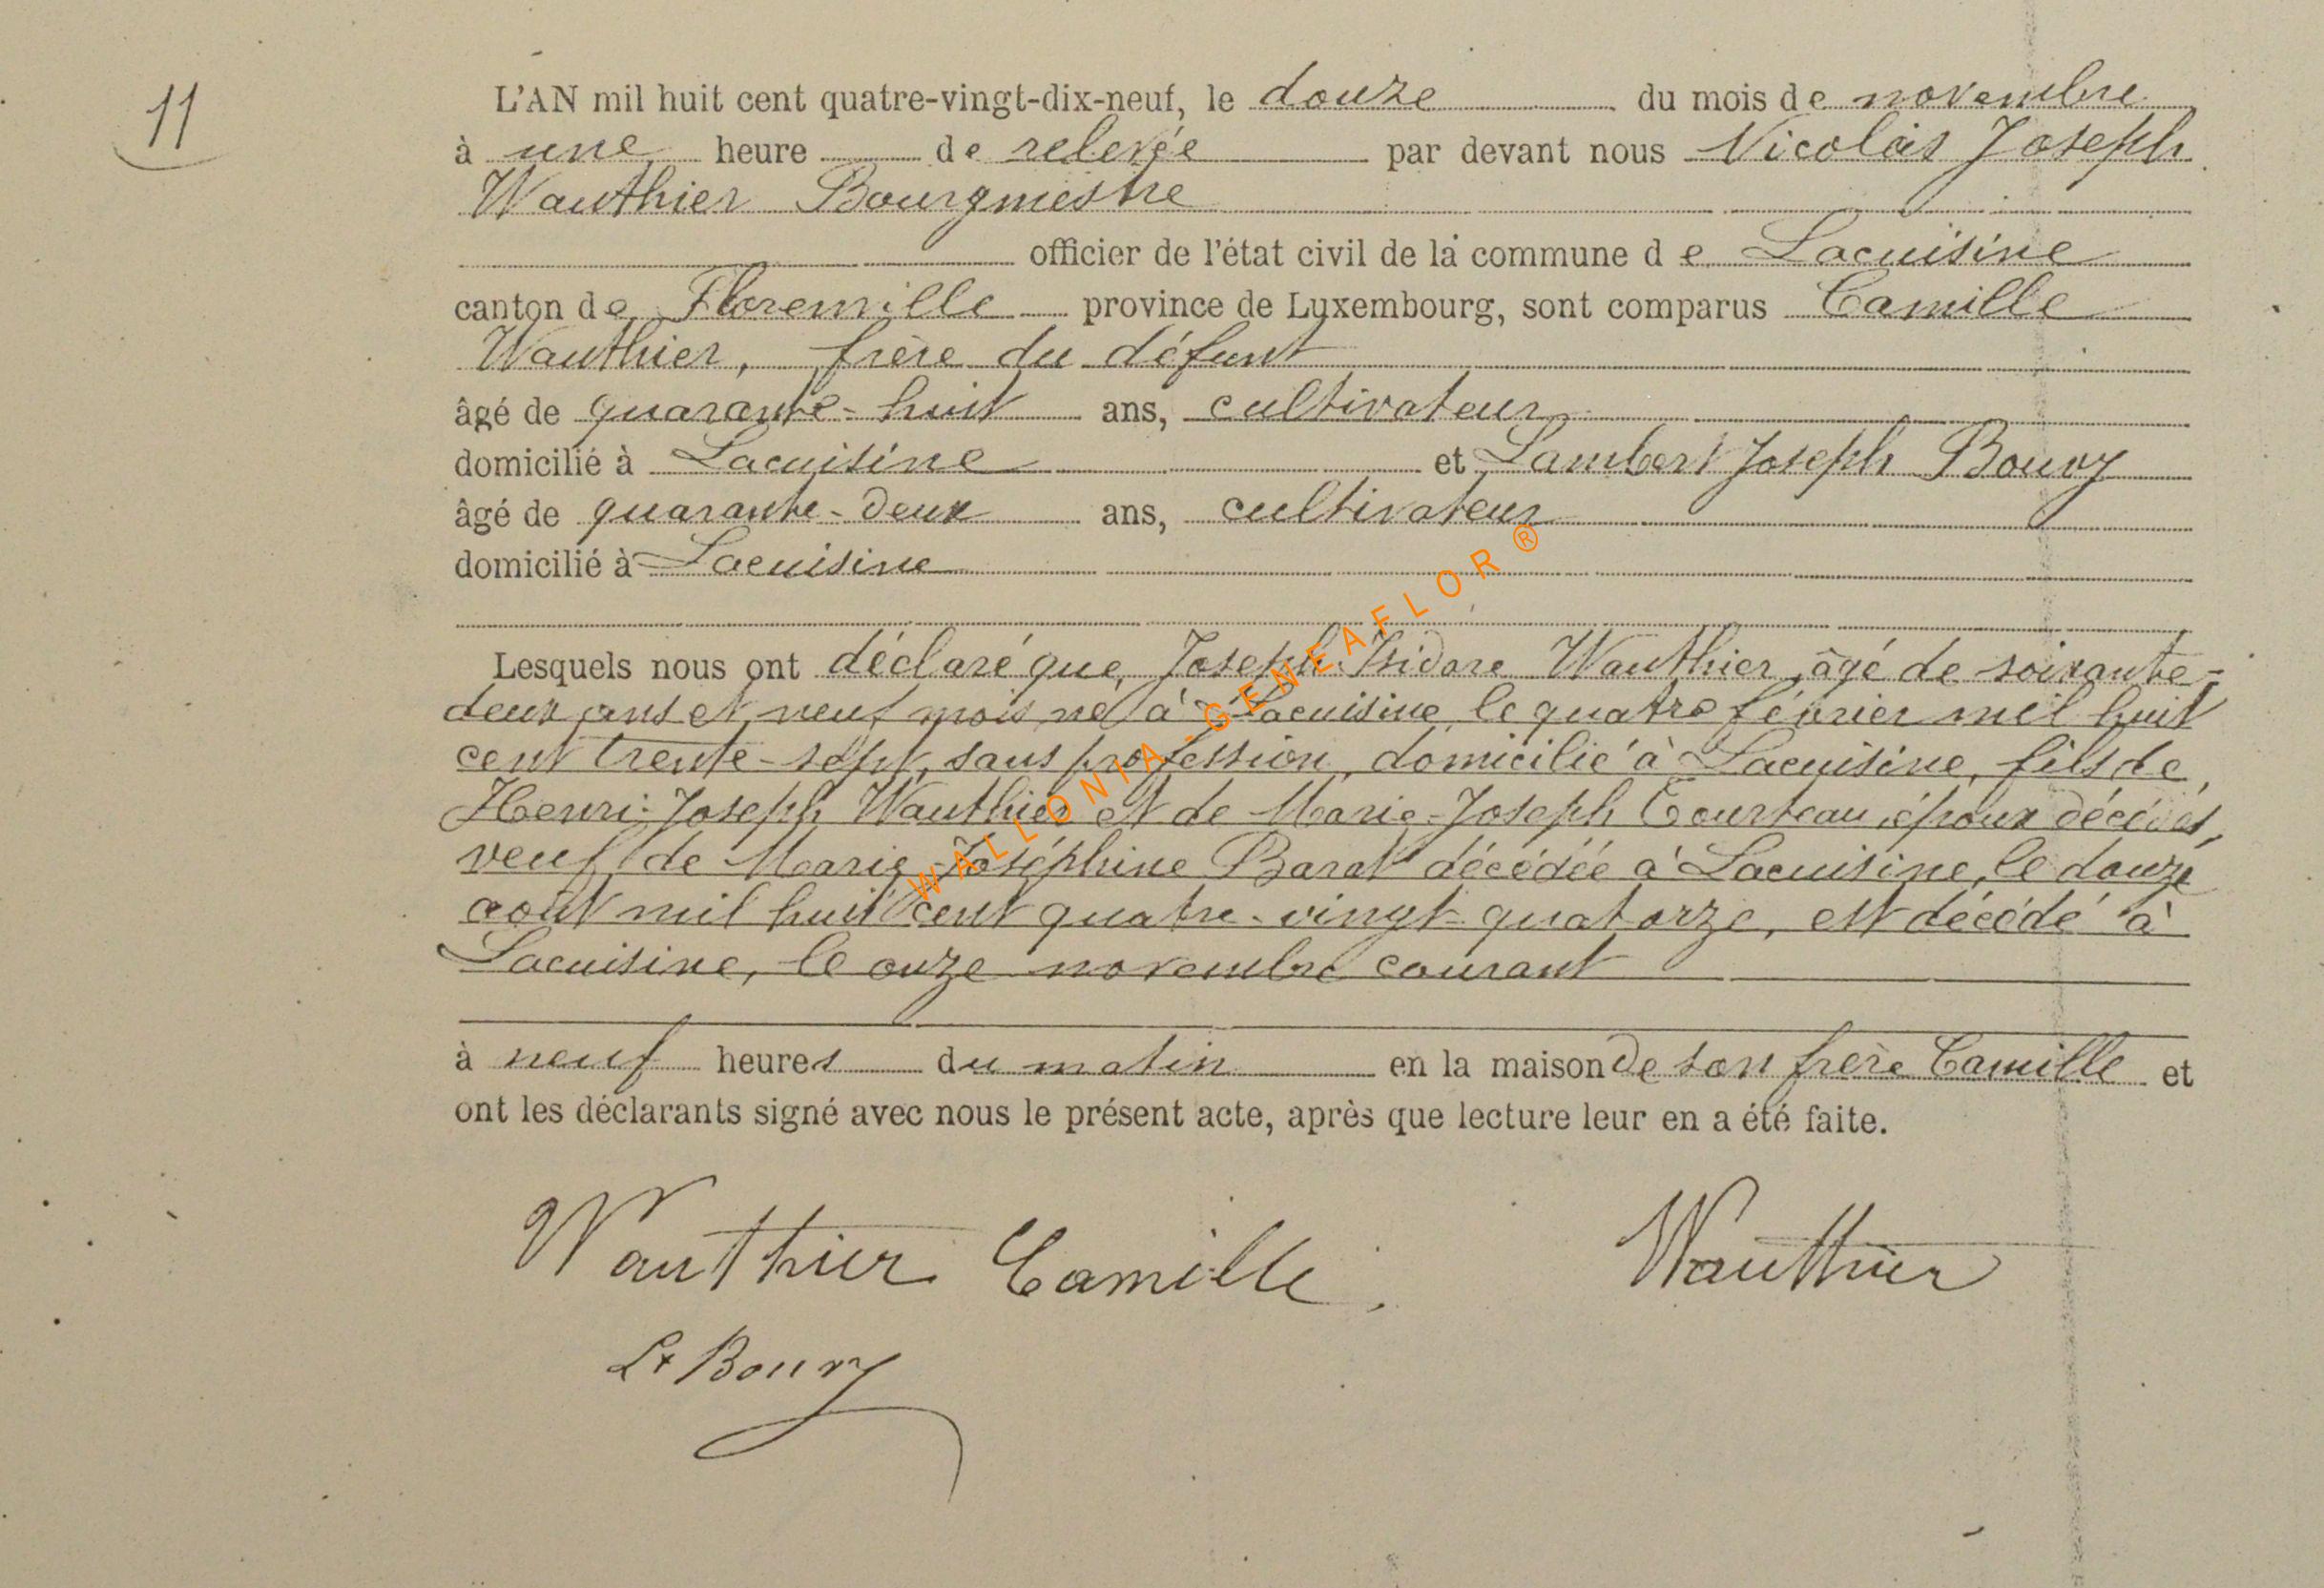 11
L'AN mil huit cent quatre-vingt-dix-neuf, le douze du mois de novembre
à une heure de relevée par devant nous Nicolas Joseph
Wauthier Bourgmestre
officier de l'état civil de la commune de Lacuisine
canton de Florenville province de Luxembourg, sont comparus Camille
Wauthier, frère du défunt
âgé de quarante-huit ans, cultivateur
domicilié à Lacuisine et Lambert Joseph Bouvy
âgé de quarante-deux ans, cultivateur
domicilié à Lacuisine
Lesquels nous ont déclaré que Joseph Isidore Wauthier, âgé de soixante-
deux ans et neuf mois né à Lacuisine le quatre février mil huit
cent trente-sept, sans profession, domicilié à Lacuisine, fils de
Henri-Joseph Wauthier et de Marie-Joseph Courteau, époux décédés,
veuf de Marie-Joséphine Barat décédée à Lacuisine, le douze
août mil huit cent quatre-vingt-quatorze, est décédé à
Lacuisine, le onze novembre courant
à neuf heures du matin en la maison de son frère Camille et
ont les déclarants signé avec nous le présent acte, après que lecture leur en a été faite.
Wauthier Camille. Wauthier
Lt Bouvy
WALLONIA-GENEAFLOR ®